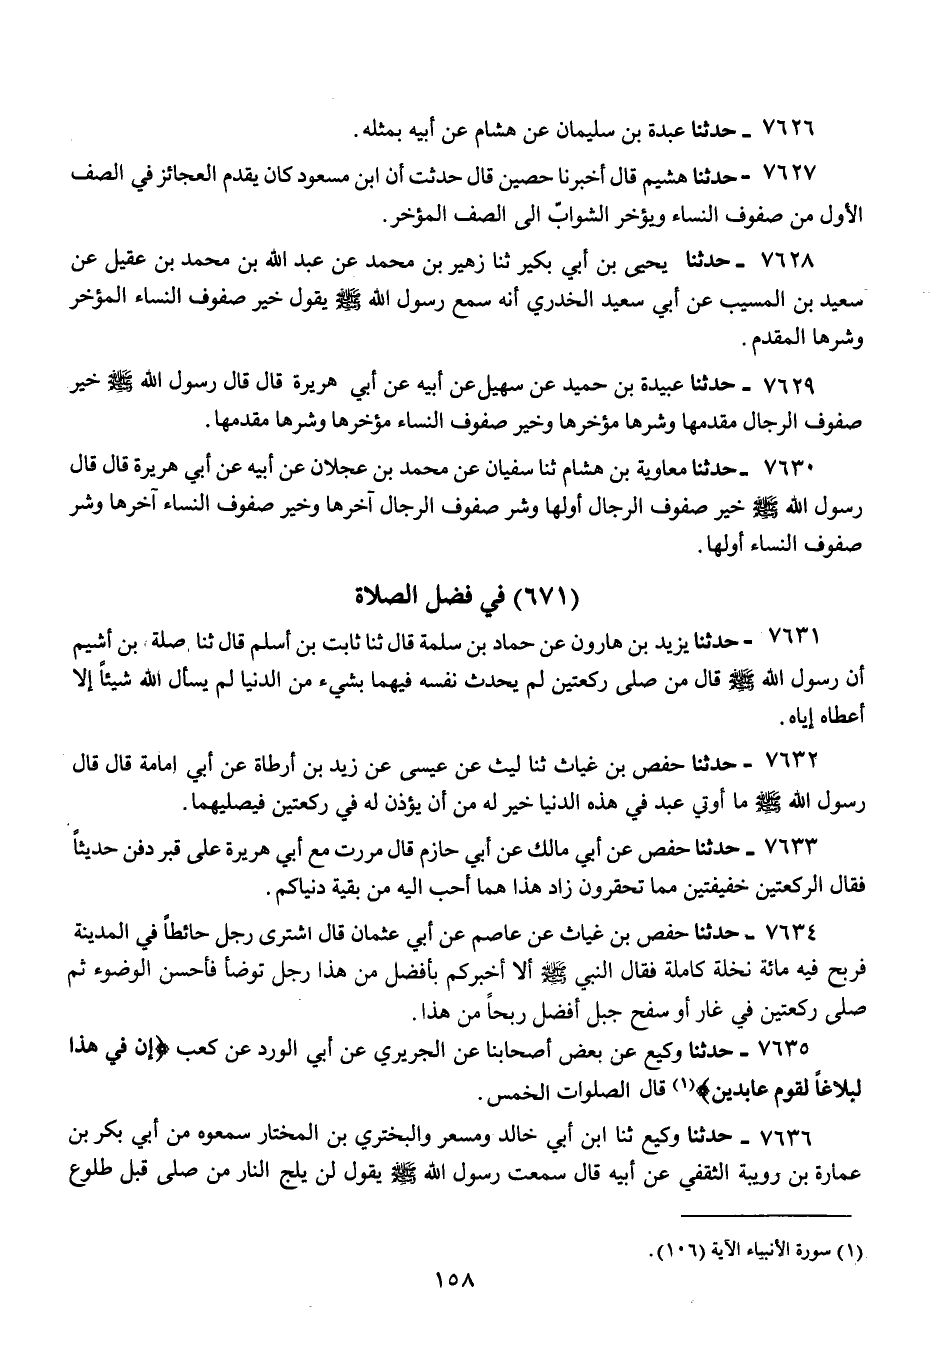 ٧٦٢٦ ـ حدثنا عبدة بن سليمان عن هشام عن أبيه بمثله.
٧٦٢٧ - حدثنا هشيم قال أخبرنا حصين قال حدثت أن ابن مسعود كان يقدم العجائز في الصف
الأول من صفوف النساء ويؤخر الشوابّ الى الصف المؤخر.
٧٦٢٨ ـ حدثنا يحيى بن أبي بكير ثنا زهير بن محمد عن عبد الله بن محمد بن عقيل عن
سعيد بن المسيب عن أبي سعيد الخدري أنه سمع رسول الله ﷺ يقول خير صفوف النساء المؤخر
وشرها المقدم.
٧٦٢٩ ـ حدثنا عبيدة بن حميد عن سهيل عن أبيه عن أبي هريرة قال قال رسول الله ﷺ خير
صفوف الرجال مقدمها وشرها مؤخرها وخير صفوف النساء مؤخرها وشرها مقدمها.
٧٦٣٠ ـ حدثنا معاوية بن هشام ثنا سفيان عن محمد بن عجلان عن أبيه عن أبي هريرة قال قال
رسول الله ﷺ خير صفوف الرجال أولها وشر صفوف الرجال آخرها وخير صفوف النساء آخرها وشر
صفوف النساء أولها.
(٦٧١) في فضل الصلاة
٧٦٣١ - حدثنا يزيد بن هارون عن حماد بن سلمة قال ثنا ثابت بن أسلم قال ثنا صلة بن أشيم
أن رسول الله ﷺ قال من صلى ركعتين لم يحدث نفسه فيهما بشيء من الدنيا لم يسأل الله شيئاً إلا
أعطاه إياه.
٧٦٣٢ - حدثنا حفص بن غياث ثنا ليث عن عيسى عن زيد بن أرطاة عن أبي امامة قال قال
رسول الله ﷺ ما أوتي عبد في هذه الدنيا خير له من أن يؤذن له في ركعتين فيصليهما.
٧٦٣٣ ـ حدثنا حفص عن أبي مالك عن أبي حازم قال مررت مع أبي هريرة على قبر دفن حديثاً
فقال الركعتين خفيفتين مما تحقرون زاد هذا هما أحب اليه من بقية دنياكم.
٧٦٣٤ ـ حدثنا حفص بن غياث عن عاصم عن أبي عثمان قال اشترى رجل حائطاً في المدينة
فربح فيه مائة نخلة كاملة فقال النبي ﷺ ألا أخبركم بأفضل من هذا رجل توضأ فأحسن الوضوء ثم
صلى ركعتين في غار أو سفح جبل أفضل ربحاً من هذا.
٧٦٣٥ ـ حدثنا وكيع عن بعض أصحابنا عن الجريري عن أبي الورد عن كعب ﴿إن في هذا
لبلاغاً لقوم عابدين﴾(١) قال الصلوات الخمس.
٧٦٣٦ ـ حدثنا وكيع ثنا ابن أبي خالد ومسعر والبختري بن المختار سمعوه من أبي بكر بن
عمارة بن رويبة الثقفي عن أبيه قال سمعت رسول الله ﷺ يقول لن يلج النار من صلى قبل طلوع
(١) سورة الأنبياء الآية (١٠٦).
١٥٨